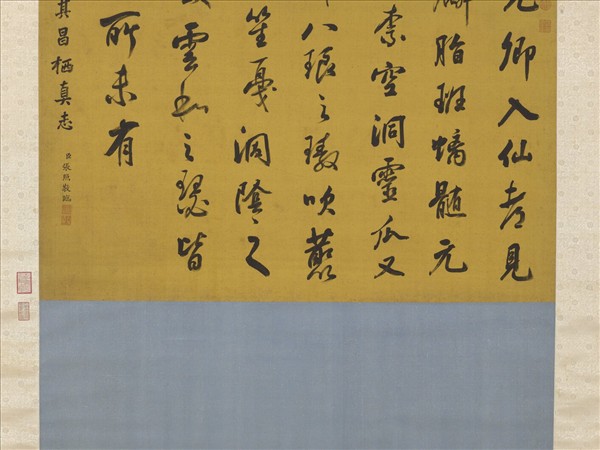 卿入仙都見
脂班螭髓元
柰空洞靈瓜又
八琅之璈吹
笙戛洞陰之
雲和之瑟皆
所未有
其昌栖真志
臣張照敬臨